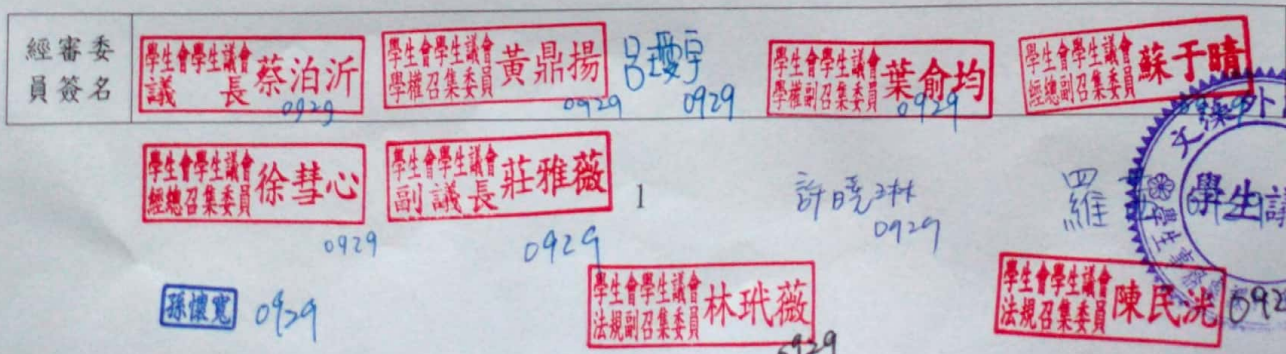 經審委
員簽名
學生會學生議會
議長 蔡泊沂
0929
學生會學生議會
學權召集委員 黃鼎揚
0929
0929
學生會學生議會
學權副召集委員 葉俞均
0929
學生會學生議會
經總副召集委員 蘇于晴
學生會學生議會
經總召集委員 徐彗心
0929
學生會學生議會
副議長 莊雅薇
0929
1
許曉琳
0929
羅
文藻外
學生議
學生事務
孫懷寬 0929
學生會學生議會
法規副召集委員 林玳薇
0929
學生會學生議會
法規召集委員 陳民洸
092